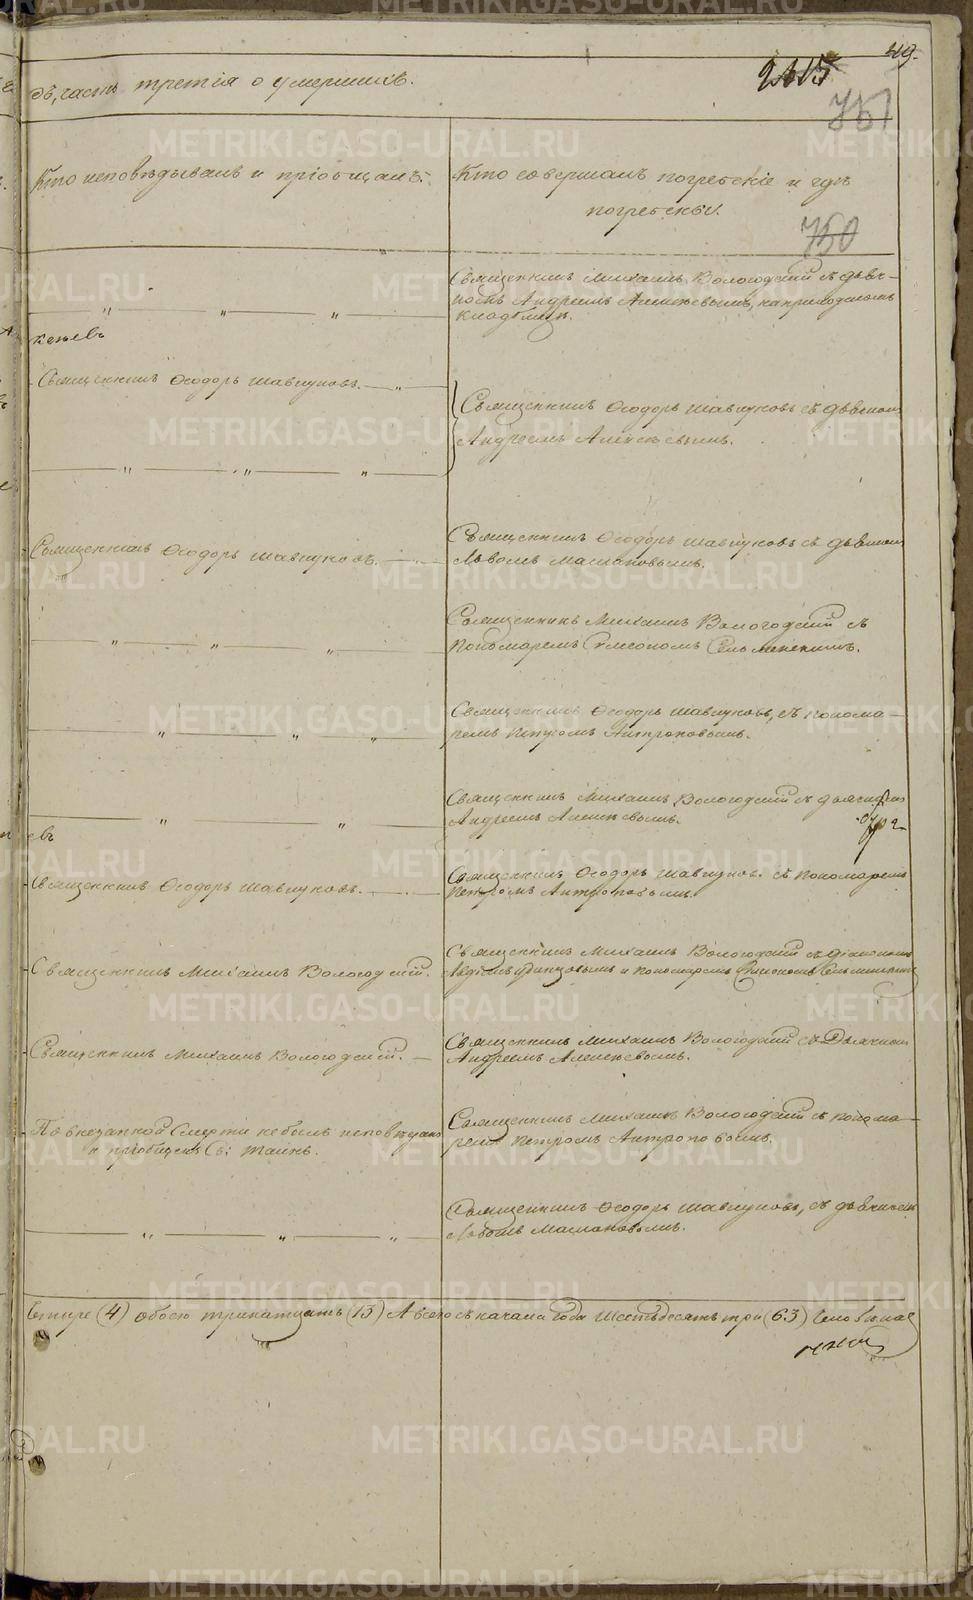 49.
2415
751
дѣ, часть третія о умершихъ.
Кто исповѣдывалъ и пріобщалъ.
Кто совершалъ погребеніе и гдѣ
погребены.
750
Священникъ Михаилъ Вологодскій съ дьяч-
комъ Андреемъ Алексѣевымъ, на приходскомъ
кладбищѣ.
Священникъ Ѳеодоръ Шавкуновъ.
Священникъ Ѳеодоръ Шавкуновъ съ дьячкомъ
Андреемъ Алексѣевымъ.
Священникъ Ѳеодоръ Шавкуновъ.
Священникъ Ѳеодоръ Шавкуновъ съ дьячкомъ
Львомъ Маслаковымъ.
Священникъ Михаилъ Вологодскій съ
пономаремъ Симеономъ
Священникъ Ѳеодоръ Шавкуновъ, съ понома-
ремъ Петромъ Антроповымъ.
Священникъ Михаилъ Вологодскій съ дьячкомъ
Андреемъ Алексѣевымъ.
евъ
Священникъ Ѳеодоръ Шавкуновъ.
Священникъ Ѳеодоръ Шавкуновъ съ пономаремъ
Петромъ Антроповымъ.
Священникъ Михаилъ Вологодскій.
Священникъ Михаилъ Вологодскій съ діакономъ
и пономаремъ Симеономъ
Священникъ Михаилъ Вологодскій.
Священникъ Михаилъ Вологодскій съ Дьячкомъ
Андреемъ Алексѣевымъ.
По внезапной смерти не былъ исповѣданъ
и пріобщенъ Св: Таинъ.
Священникъ Михаилъ Вологодскій съ понома-
ремъ Петромъ Антроповымъ.
Священникъ Ѳеодоръ Шавкуновъ, съ дьячкомъ
Львомъ Маслаковымъ.
Четыре (4) обоего тринатцать (13) А всего съ начала года шестьдесятъ три (63)
METRIKI.GASO-URAL.RU